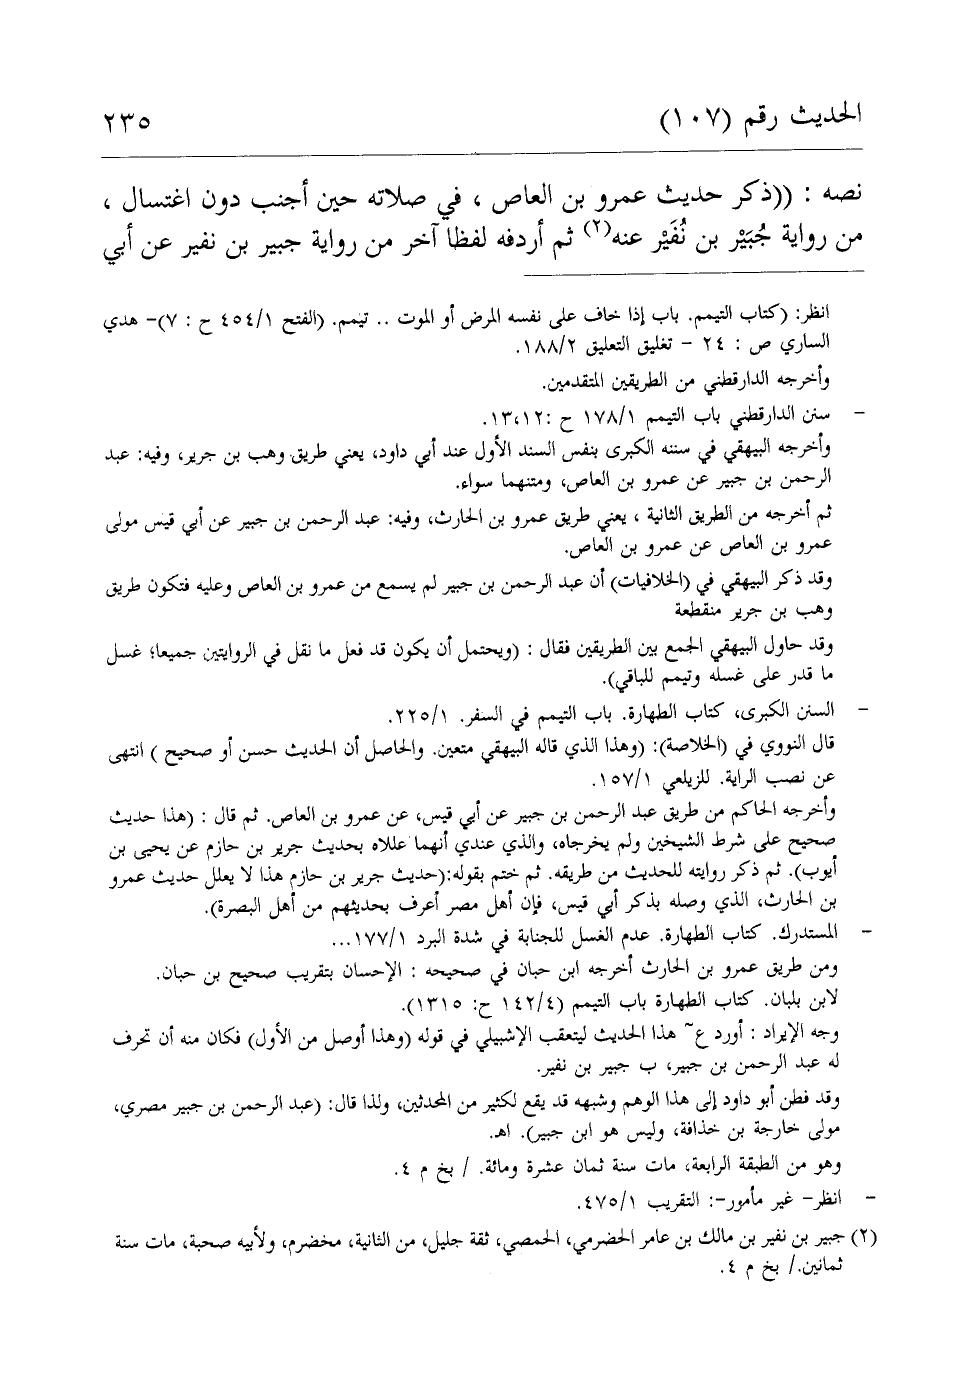 الحديث رقم (١٠٧) ٢٣٥
نصه : ((ذكر حديث عمرو بن العاص ، في صلاته حين أجنب دون اغتسال ،
من رواية جُبَيْر بن نُفَيْر عنه(٢) ثم أردفه لفظا آخر من رواية جبير بن نفير عن أبي
انظر: (كتاب التيمم. باب إذا خاف على نفسه المرض أو الموت .. تيمم. (الفتح ٤٥٤/١ ح : ٧)- هدي
الساري ص : ٢٤ - تغليق التعليق ١٨٨/٢.
وأخرجه الدارقطني من الطريقين المتقدمين.
- سنن الدارقطني باب التيمم ١٧٨/١ ح :١٣،١٢.
وأخرجه البيهقي في سننه الكبرى بنفس السند الأول عند أبي داود، يعني طريق وهب بن جرير، وفيه: عبد
الرحمن بن جبير عن عمرو بن العاص، ومتنهما سواء.
ثم أخرجه من الطريق الثانية ، يعني طريق عمرو بن الحارث، وفيه: عبد الرحمن بن جبير عن أبي قيس مولى
عمرو بن العاص عن عمرو بن العاص.
وقد ذكر البيهقي في (الخلافيات) أن عبد الرحمن بن جبير لم يسمع من عمرو بن العاص وعليه فتكون طريق
وهب بن جرير منقطعة
وقد حاول البيهقي الجمع بين الطريقين فقال : (ويحتمل أن يكون قد فعل ما نقل في الروايتين جميعا؛ غسل
ما قدر على غسله وتيمم للباقي).
- السنن الكبرى، كتاب الطهارة. باب التيمم في السفر. ٢٢٥/١.
قال النووي في (الخلاصة): (وهذا الذي قاله البيهقي متعين. والحاصل أن الحديث حسن أو صحيح ) انتهى
عن نصب الراية. للزيلعي ١٥٧/١.
وأخرجه الحاكم من طريق عبد الرحمن بن جبير عن أبي قيس، عن عمرو بن العاص. ثم قال : (هذا حديث
صحيح على شرط الشيخين ولم يخرجاه، والذي عندي أنهما عللاه بحديث جرير بن حازم عن يحيى بن
أيوب). ثم ذكر روايته للحديث من طريقه. ثم ختم بقوله:(حديث جرير بن حازم هذا لا يعلل حديث عمرو
بن الحارث، الذي وصله بذكر أبي قيس، فإن أهل مصر أعرف بحديثهم من أهل البصرة).
- المستدرك. كتاب الطهارة. عدم الغسل للجنابة في شدة البرد ١٧٧/١...
ومن طريق عمرو بن الحارث أخرجه ابن حبان في صحيحه : الإحسان بتقريب صحيح بن حبان.
لابن بلبان. كتاب الطهارة باب التيمم (١٤٢/٤ ح: ١٣١٥).
وجه الإيراد : أورد ع~ هذا الحديث ليتعقب الإشبيلي في قوله (وهذا أوصل من الأول) فكان منه أن تحرف
له عبد الرحمن بن جبير، ب جبير بن نفير.
وقد فطن أبو داود إلى هذا الوهم وشبهه قد يقع لكثير من المحدثين، ولذا قال: (عبد الرحمن بن جبير مصري،
مولى خارجة بن خذافة، وليس هو ابن جبير). اهـ.
وهو من الطبقة الرابعة، مات سنة ثمان عشرة ومائة. / بخ م ٤.
- انظر- غير مأمور-: التقريب ٤٧٥/١.
(٢) جبير بن نفير بن مالك بن عامر الحضرمي، الحمصي، ثقة جليل، من الثانية، مخضرم، ولأبيه صحبة، مات سنة
ثمانين./ بخ م ٤.